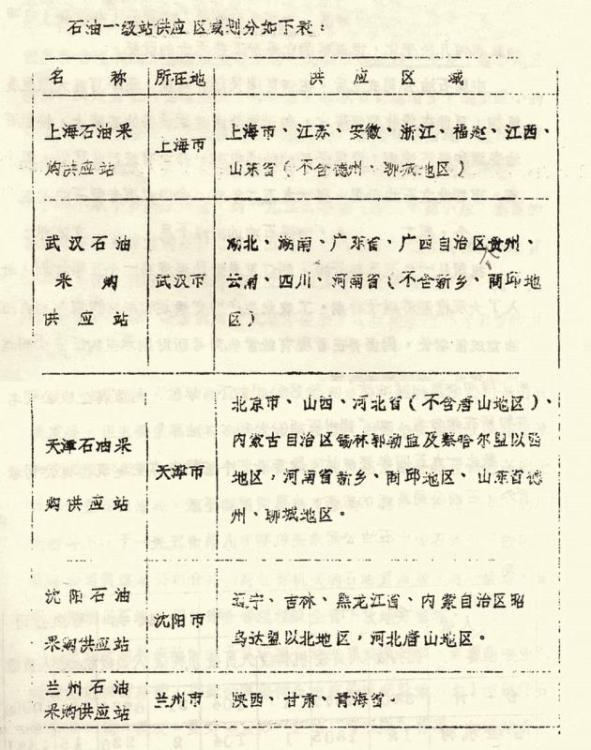 石油一级站供应区域划分如下表：
名 称 所在地 供 应 区 域
上海石油采购供应站 上海市 上海市、江苏、安徽、浙江、福建、江西、
山东省(不含德州、聊城地区)
武汉石油采购供应站 武汉市 湖北、湖南、广东省、广西自治区、贵州、
云南、四川、河南省(不含新乡、商邱地
区)
天津石油采购供应站 天津市 北京市、山西、河北省(不含唐山地区)、
内蒙古自治区锡林郭勒盟及察哈尔盟以西
地区，河南省新乡、商邱地区、山东省德
州、聊城地区。
沈阳石油采购供应站 沈阳市 辽宁、吉林、黑龙江省、内蒙自治区昭
乌达盟以北地区，河北唐山地区。
兰州石油采购供应站 兰州市 陕西、甘肃、青海省。